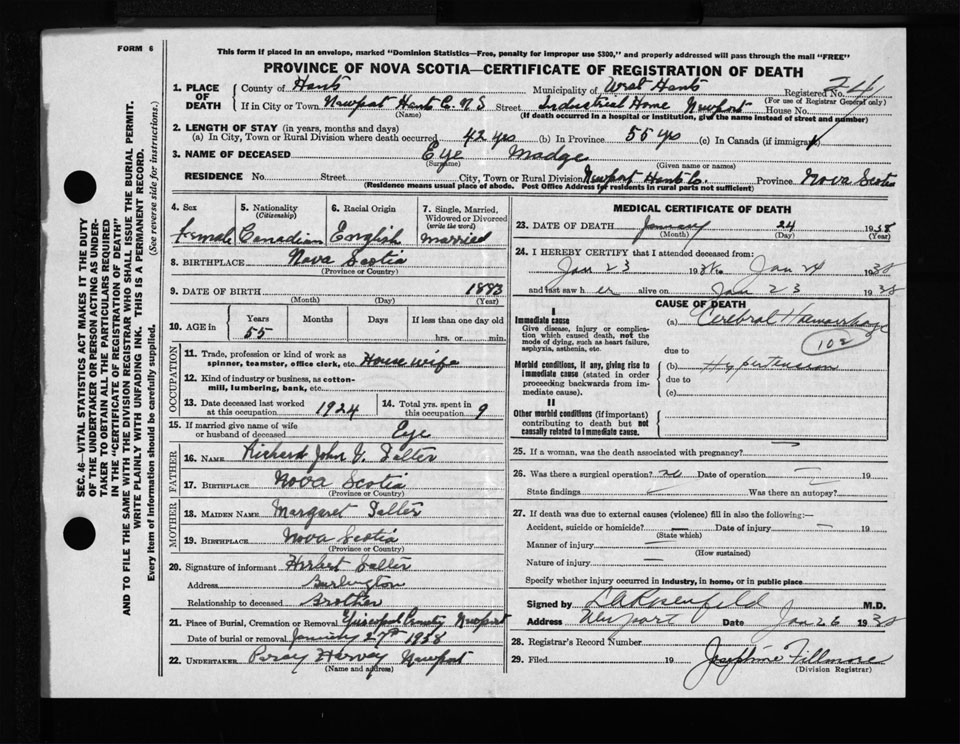 FORM 6
This form if placed in an envelope, marked "Dominion Statistics—Free, penalty for improper use $300," and properly addressed will pass through the mail "FREE"
PROVINCE OF NOVA SCOTIA—CERTIFICATE OF REGISTRATION OF DEATH
SEC. 46—VITAL STATISTICS ACT MAKES IT THE DUTY
OF THE UNDERTAKER OR PERSON ACTING AS UNDER-
TAKER TO OBTAIN ALL THE PARTICULARS REQUIRED
IN THE "CERTIFICATE OF REGISTRATION OF DEATH"
AND TO FILE THE SAME WITH THE DIVISION REGISTRAR WHO SHALL ISSUE THE BURIAL PERMIT.
WRITE PLAINLY WITH UNFADING INK. THIS IS A PERMANENT RECORD.
Every item of information should be carefully supplied. (See reverse side for instructions.)
1. PLACE OF DEATH
County of Hants Municipality of West Hants Registered No.
(For use of Registrar General only)
If in City or Town Newport Hants Co. N S Street Industrial Home Newport House No.
(Name) (If death occurred in a hospital or institution, give the name instead of street and number)
2. LENGTH OF STAY (in years, months and days)
(a) In City, Town or Rural Division where death occurred 42 yrs (b) In Province 55 yrs (c) In Canada (if immigrant)
3. NAME OF DECEASED Eye Madge
(Surname) (Given name or names)
RESIDENCE No. Street City, Town or Rural Division Newport Hants Co. Province Nova Scotia
(Residence means usual place of abode. Post Office Address for residents in rural parts not sufficient)
4. Sex 5. Nationality (Citizenship) 6. Racial Origin 7. Single, Married, Widowed or Divorced (write the word)
female Canadian English married
8. BIRTHPLACE Nova Scotia
(Province or Country)
9. DATE OF BIRTH 1883
(Month) (Day) (Year)
10. AGE in Years Months Days If less than one day old
55 hrs. or min.
OCCUPATION
11. Trade, profession or kind of work as spinner, teamster, office clerk, etc. House wife
12. Kind of industry or business, as cotton-mill, lumbering, bank, etc.
13. Date deceased last worked at this occupation 1924 14. Total yrs. spent in this occupation 9
15. If married give name of wife or husband of deceased Eye
FATHER
16. NAME Richard John Salter
17. BIRTHPLACE Nova Scotia
(Province or Country)
MOTHER
18. MAIDEN NAME Margaret Salter
19. BIRTHPLACE Nova Scotia
(Province or Country)
20. Signature of informant Herbert Salter
Address Burlington
Relationship to deceased Brother
21. Place of Burial, Cremation or Removal Episcopal Cemetry Newport
Date of burial or removal January 27th 1938
22. UNDERTAKER Percy Harvey Newport
(Name and address)
MEDICAL CERTIFICATE OF DEATH
23. DATE OF DEATH January 24 1938
(Month) (Day) (Year)
24. I HEREBY CERTIFY that I attended deceased from:
Jan 23 1938 to Jan 24 1938
and last saw her alive on Jan 23 1938
CAUSE OF DEATH
I
Immediate cause
Give disease, injury or complication which caused death, not the mode of dying, such as heart failure, asphyxia, asthenia, etc.
(a) Cerebral Haemorrhage
102
due to
Morbid conditions, if any, giving rise to immediate cause (stated in order proceeding backwards from immediate cause).
(b) Hypertension
due to
(c)
II
Other morbid conditions (if important) contributing to death but not causally related to immediate cause.
25. If a woman, was the death associated with pregnancy?
26. Was there a surgical operation? no Date of operation 19
State findings Was there an autopsy?
27. If death was due to external causes (violence) fill in also the following:—
Accident, suicide or homicide? Date of injury 19
(State which)
Manner of injury
(How sustained)
Nature of injury
Specify whether injury occurred in industry, in home, or in public place
Signed by M.D.
Address Newport Date Jan 26 1938
28. Registrar's Record Number
29. Filed 19 Josephine Fillmore
(Division Registrar)